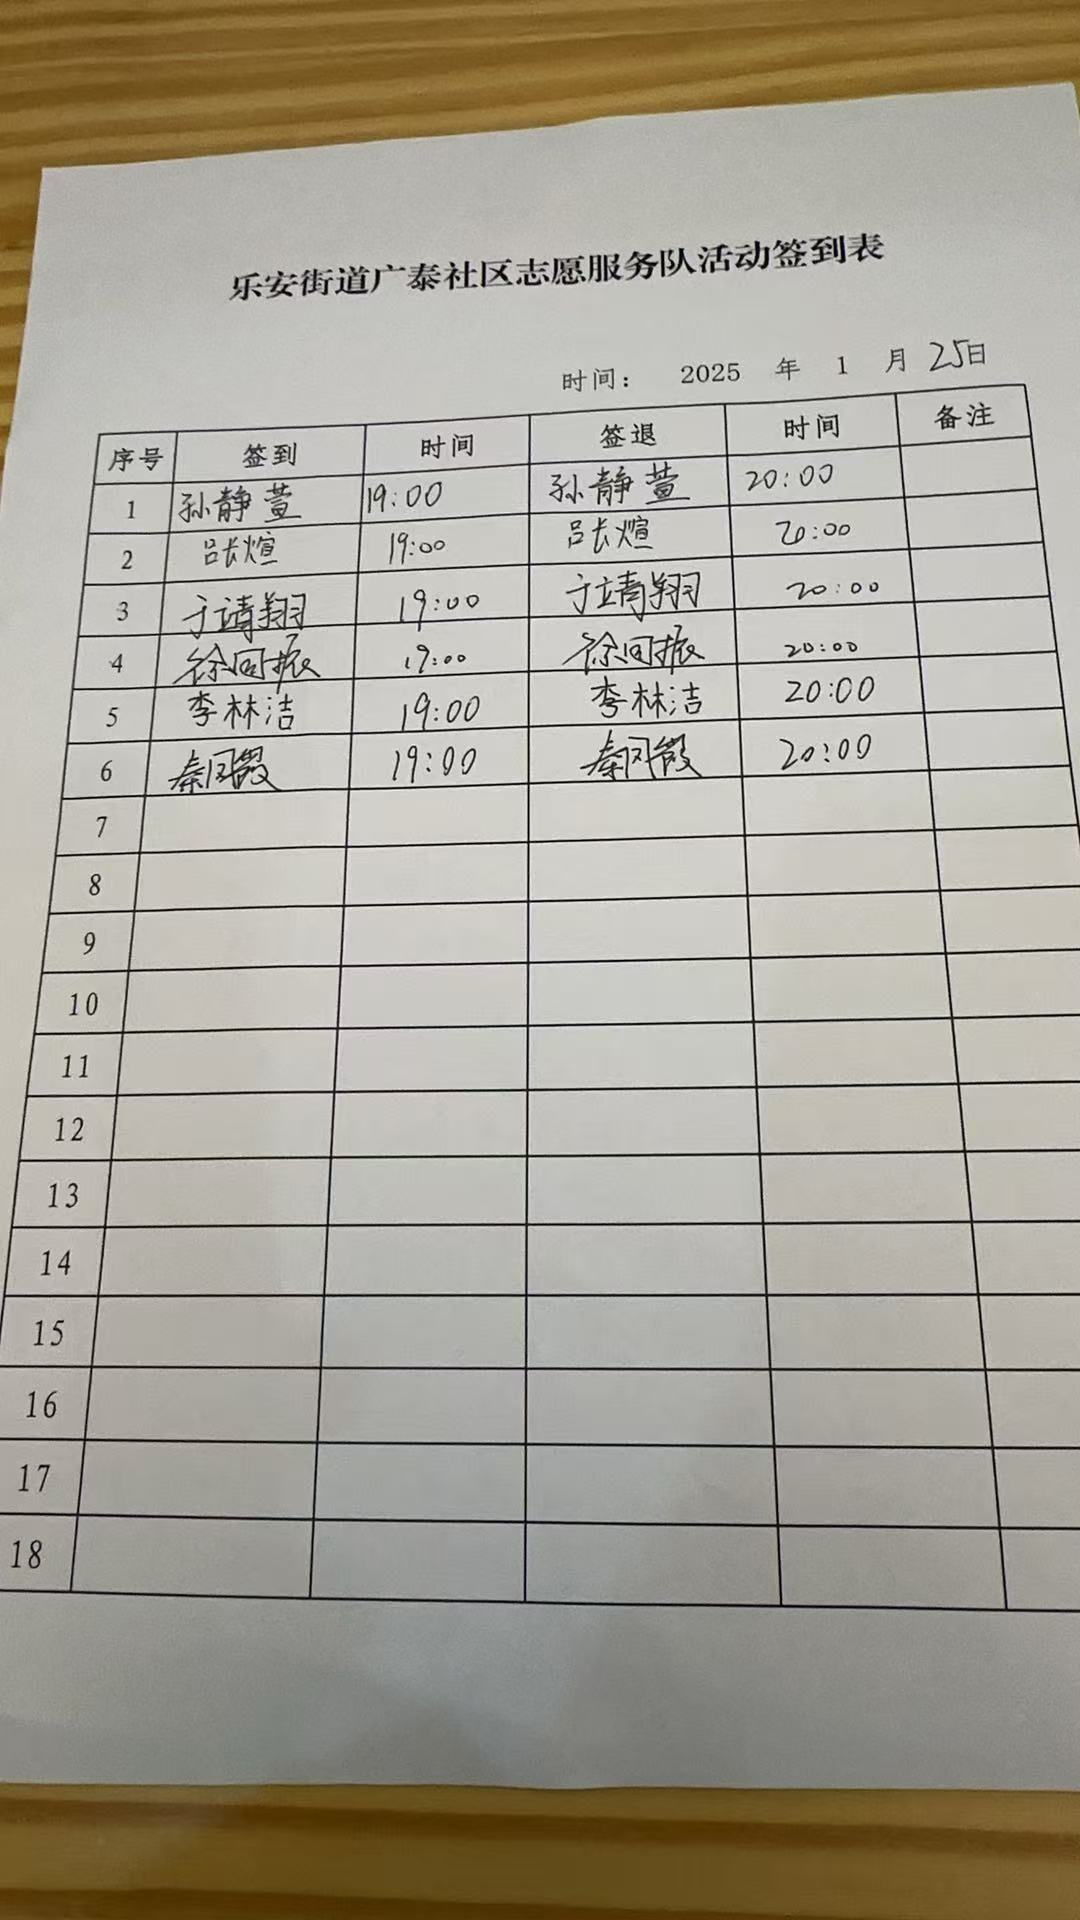 乐安街道广泰社区志愿服务队活动签到表
时间： 2025 年 1 月 25日
序号 签到 时间 签退 时间 备注
1 孙静萱 19:00 孙静萱 20:00
2 吕长煊 19:00 吕长煊 20:00
3 于靖翔 19:00 于靖翔 20:00
4 徐回振 19:00 徐回振 20:00
5 李林洁 19:00 李林洁 20:00
6 秦 19:00 秦 20:00
7
8
9
10
11
12
13
14
15
16
17
18